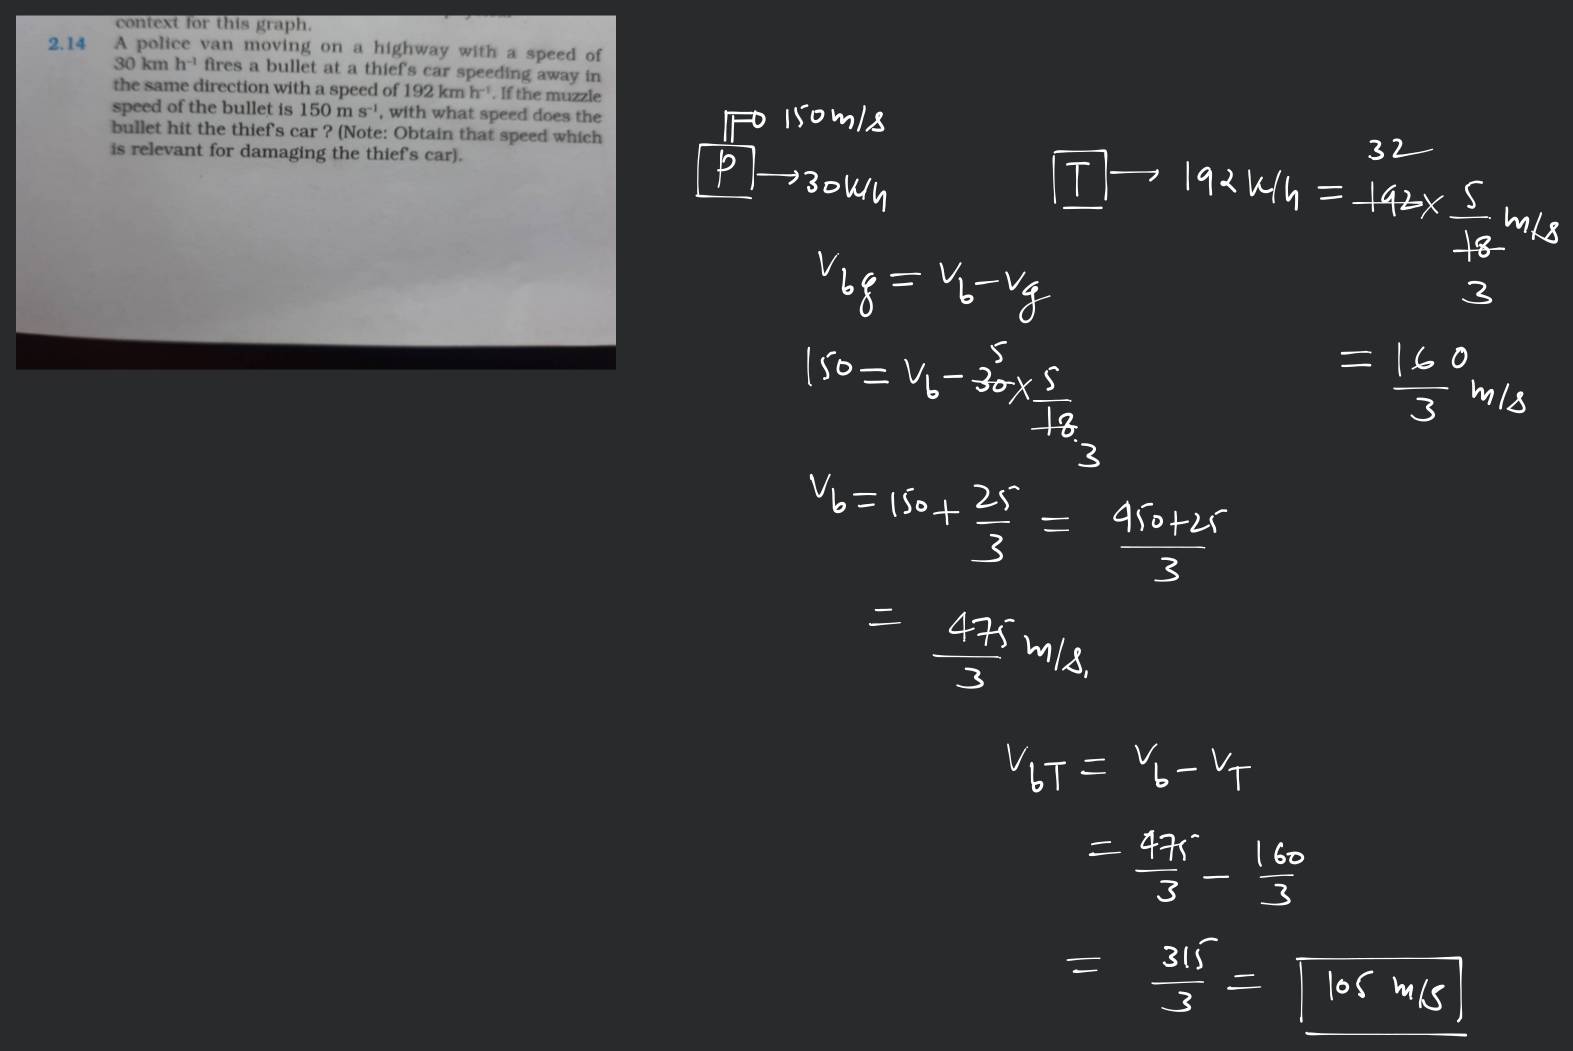 context for this graph.
2.14 A police van moving on a highway with a speed of
30 km h⁻¹ fires a bullet at a thief's car speeding away in
the same direction with a speed of 192 km h⁻¹. If the muzzle
speed of the bullet is 150 m s⁻¹, with what speed does the
bullet hit the thief's car ? (Note: Obtain that speed which
is relevant for damaging the thief's car).
150 m/s
P → 30 k/h
T → 192 k/h = 192 × 5/18 m/s
32
3
= 160/3 m/s
V_bg = V_b - V_g
150 = V_b - 30 × 5/18
5
3
V_b = 150 + 25/3 = 450+25/3
= 475/3 m/s.
V_bT = V_b - V_T
= 475/3 - 160/3
= 315/3 = 105 m/s